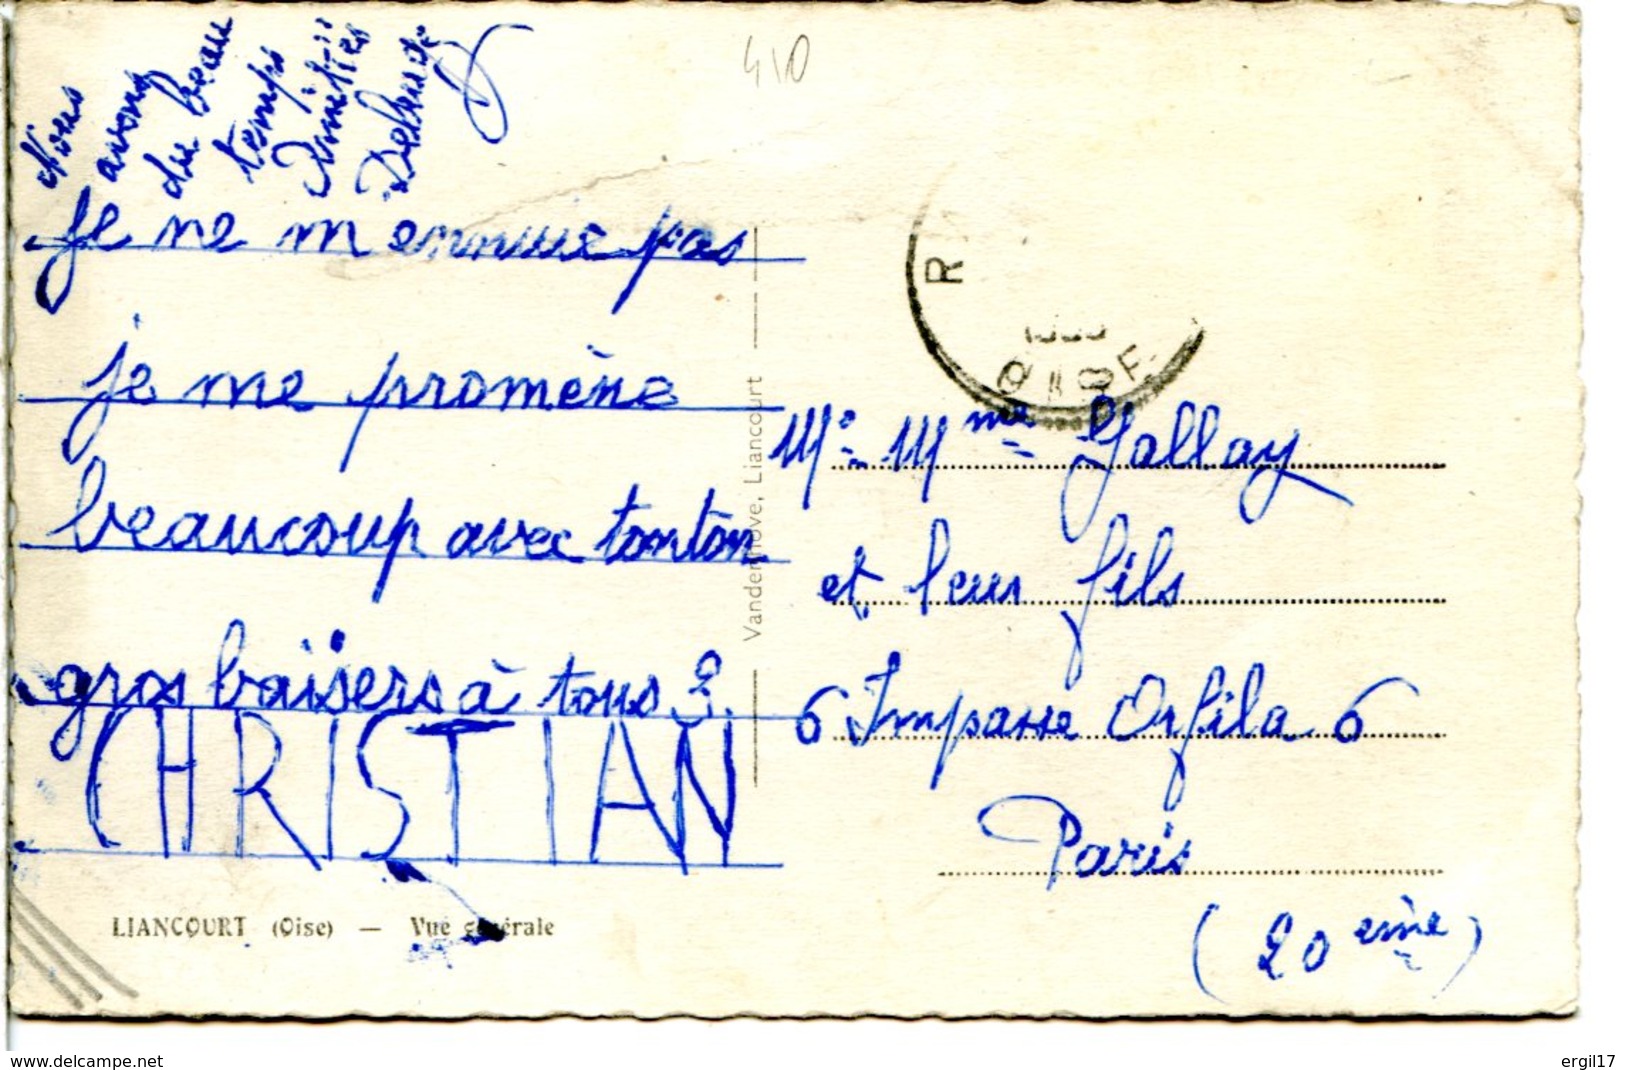 410
Nous
avons
du beau
temps
Amitiés
Je ne m ennuie pas
je me promène
beaucoup avec tonton
gros baisers à tous 2.
CHRISTIAN
LIANCOURT (Oise) — Vue générale
Vandenhove, Liancourt
R
OISE
Mr. Mme Gallay
et leur fils
6 Impasse Orfila 6
Paris
(20 ème)
www.delcampe.net
ergil17